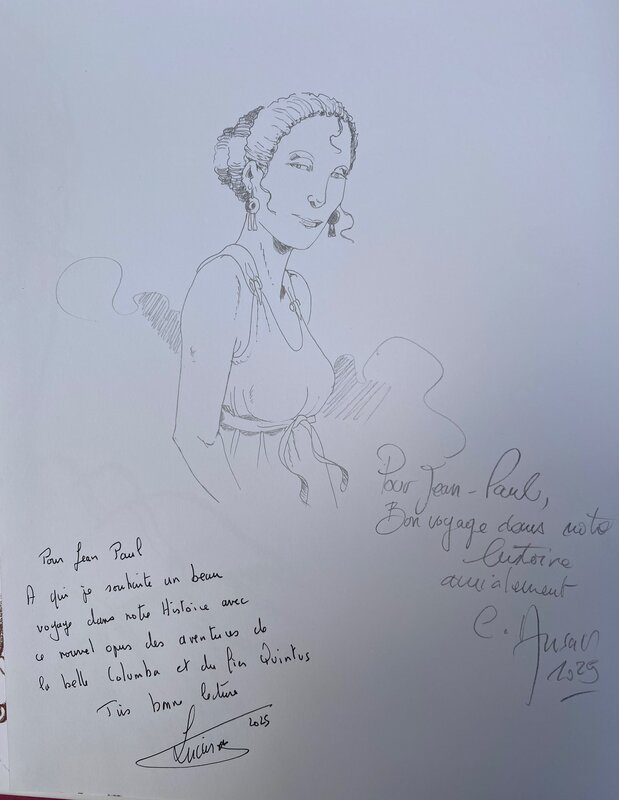 Pour Jean-Paul,
Bon voyage dans notre
histoire
amicalement
C.
2025
Pour Jean Paul
A qui je souhaite un beau
voyage dans notre Histoire avec
ce nouvel opus des aventures de
la belle Columba et du fier Quintus
Très bonne lecture
Lucius 2025